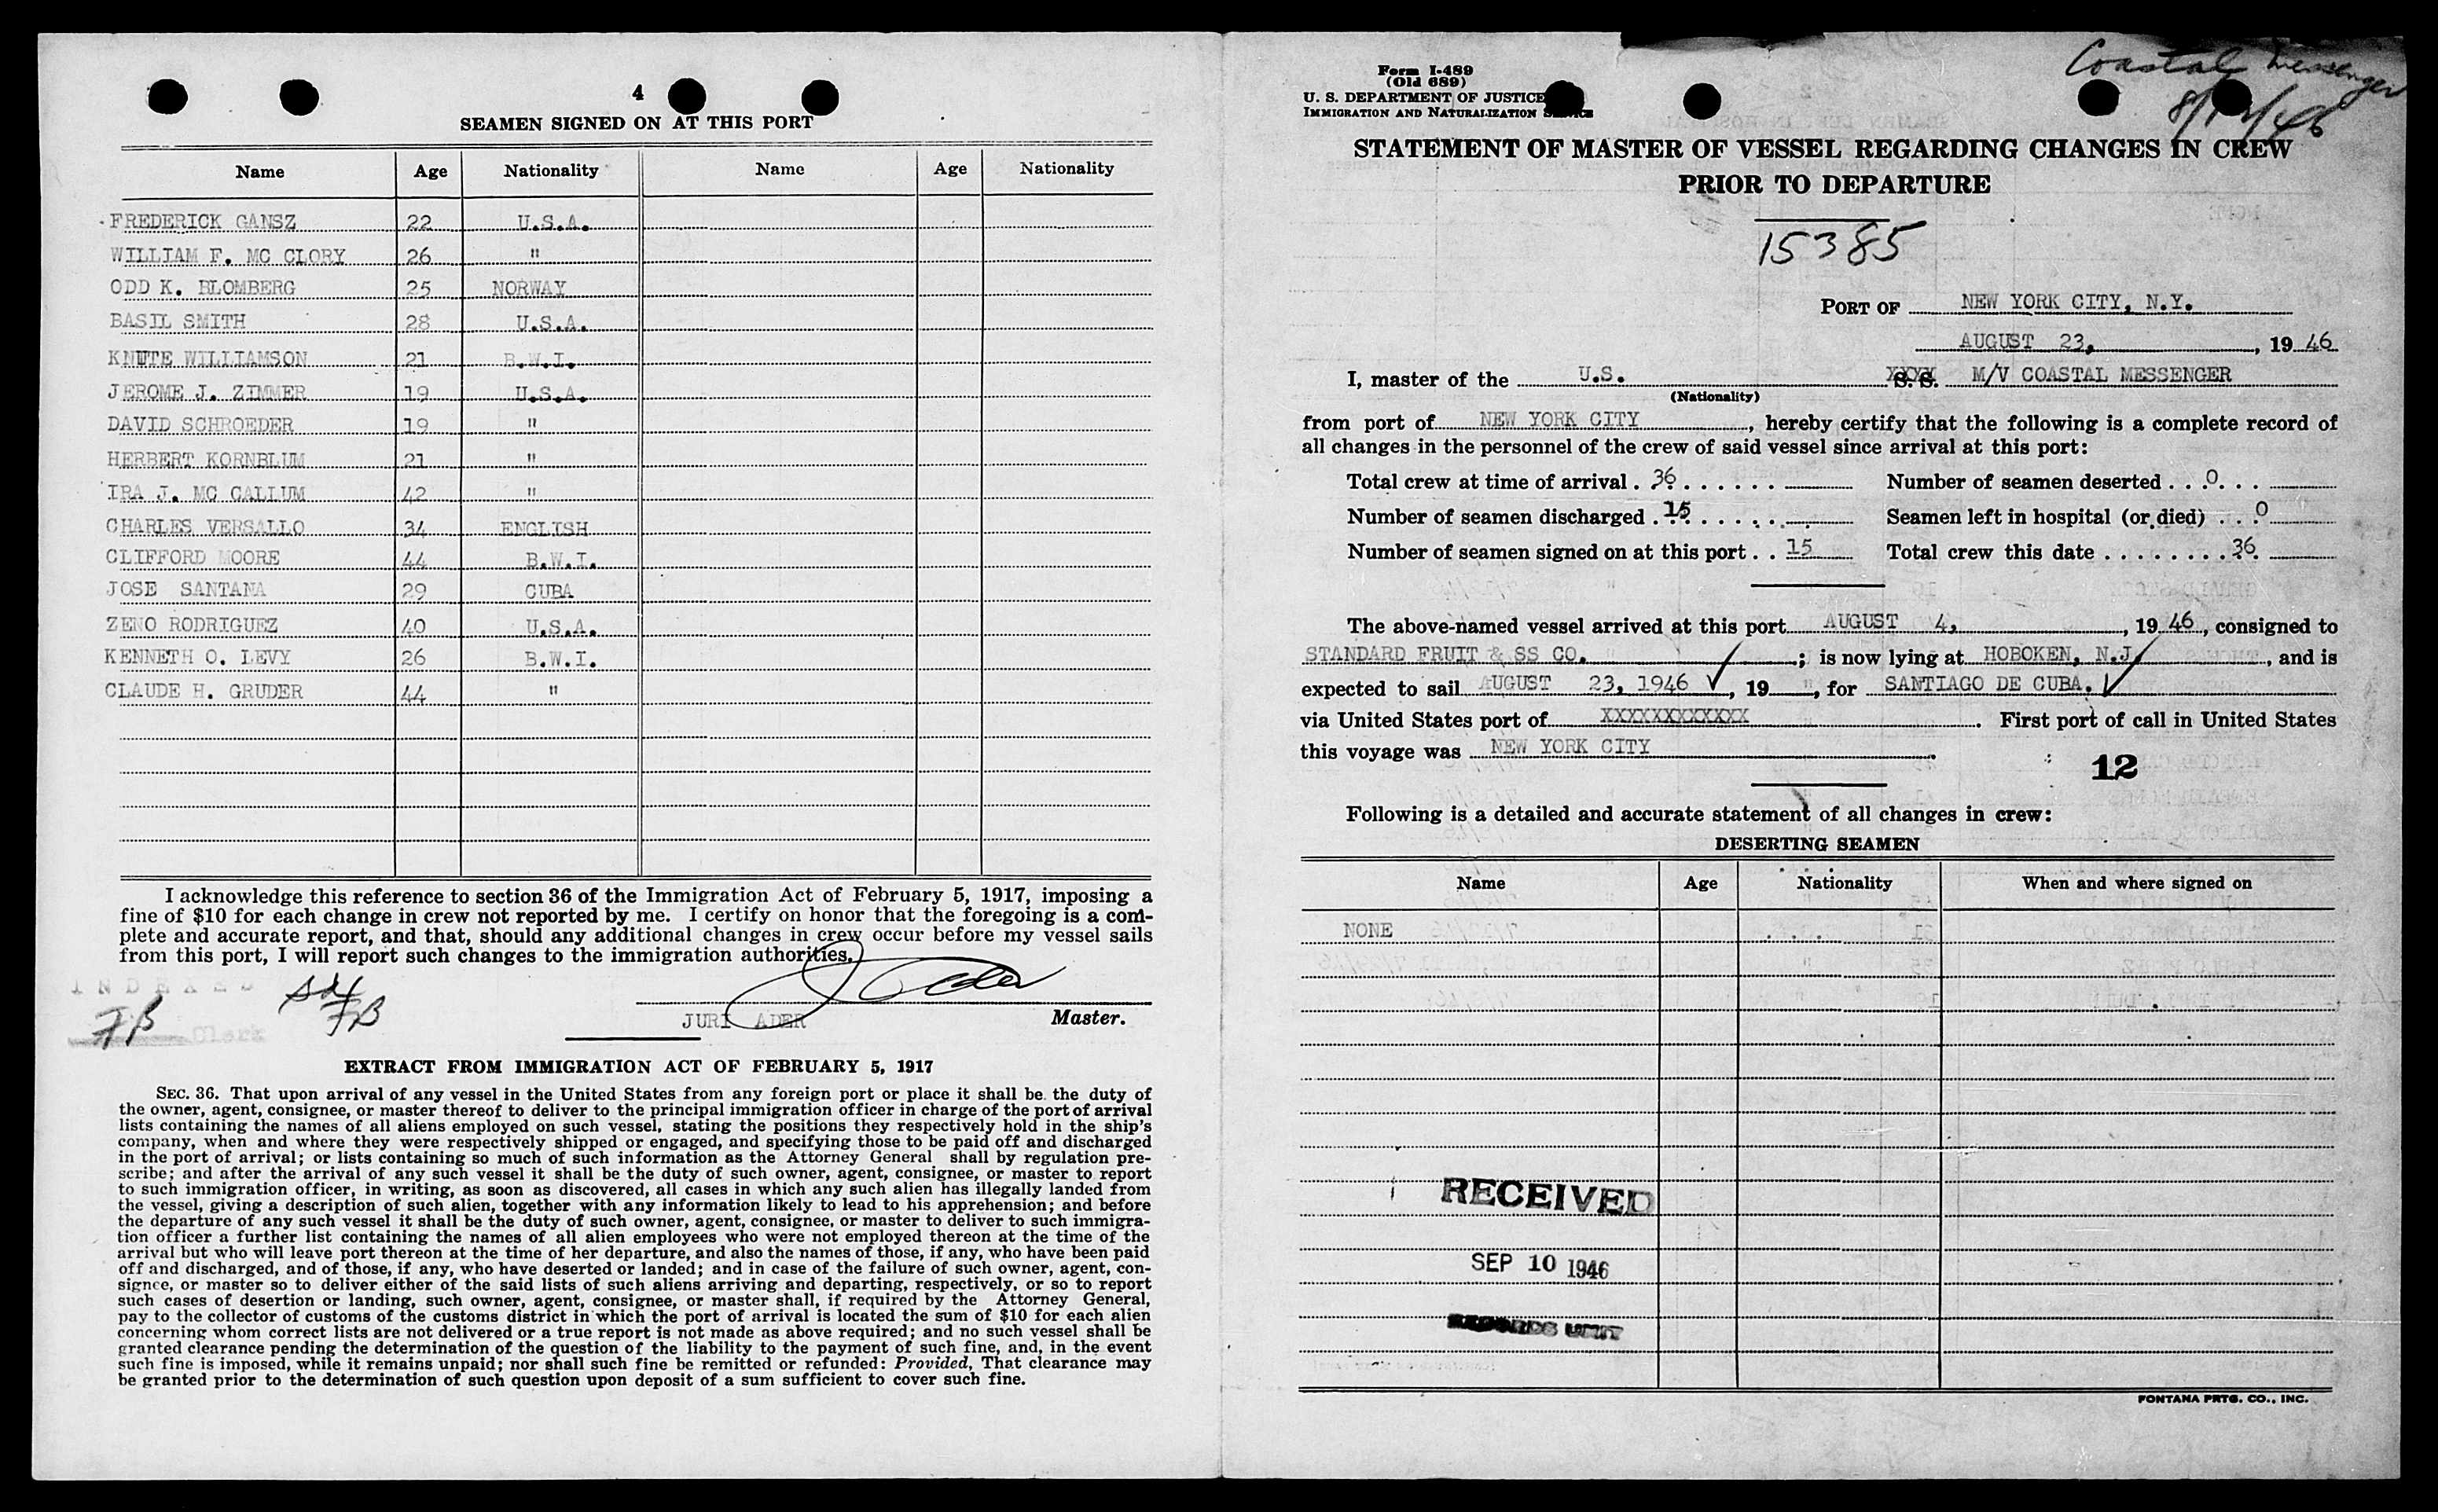 4
SEAMEN SIGNED ON AT THIS PORT
Name Age Nationality Name Age Nationality
FREDERICK GANSZ 22 U.S.A.
WILLIAM F. MC CLORY 26 "
ODD K. BLOMBERG 25 NORWAY
BASIL SMITH 28 U.S.A.
KNUTE WILLIAMSON 21 B.W.I.
JEROME J. ZIMMER 19 U.S.A.
DAVID SCHROEDER 19 "
HERBERT KORNBLUM 21 "
IRA J. MC CALLUM 42 "
CHARLES VERSALLO 34 ENGLISH
CLIFFORD MOORE 44 B.W.I.
JOSE SANTANA 29 CUBA
ZENO RODRIGUEZ 40 U.S.A.
KENNETH O. LEVY 26 B.W.I.
CLAUDE H. GRUDER 44 "
I acknowledge this reference to section 36 of the Immigration Act of February 5, 1917, imposing a
fine of $10 for each change in crew not reported by me. I certify on honor that the foregoing is a com-
plete and accurate report, and that, should any additional changes in crew occur before my vessel sails
from this port, I will report such changes to the immigration authorities.
INDEXED
FB
Clerk
FB
J Ader
JURI ADER Master.
EXTRACT FROM IMMIGRATION ACT OF FEBRUARY 5, 1917
SEC. 36. That upon arrival of any vessel in the United States from any foreign port or place it shall be the duty of
the owner, agent, consignee, or master thereof to deliver to the principal immigration officer in charge of the port of arrival
lists containing the names of all aliens employed on such vessel, stating the positions they respectively hold in the ship's
company, when and where they were respectively shipped or engaged, and specifying those to be paid off and discharged
in the port of arrival; or lists containing so much of such information as the Attorney General shall by regulation pre-
scribe; and after the arrival of any such vessel it shall be the duty of such owner, agent, consignee, or master to report
to such immigration officer, in writing, as soon as discovered, all cases in which any such alien has illegally landed from
the vessel, giving a description of such alien, together with any information likely to lead to his apprehension; and before
the departure of any such vessel it shall be the duty of such owner, agent, consignee, or master to deliver to such immigra-
tion officer a further list containing the names of all alien employees who were not employed thereon at the time of the
arrival but who will leave port thereon at the time of her departure, and also the names of those, if any, who have been paid
off and discharged, and of those, if any, who have deserted or landed; and in case of the failure of such owner, agent, con-
signee, or master so to deliver either of the said lists of such aliens arriving and departing, respectively, or so to report
such cases of desertion or landing, such owner, agent, consignee, or master shall, if required by the Attorney General,
pay to the collector of customs of the customs district in which the port of arrival is located the sum of $10 for each alien
concerning whom correct lists are not delivered or a true report is not made as above required; and no such vessel shall be
granted clearance pending the determination of the question of the liability to the payment of such fine, and, in the event
such fine is imposed, while it remains unpaid; nor shall such fine be remitted or refunded: Provided, That clearance may
be granted prior to the determination of such question upon deposit of a sum sufficient to cover such fine.
Form I-489
(Old 689)
U. S. DEPARTMENT OF JUSTICE
IMMIGRATION AND NATURALIZATION SERVICE
Coastal Messenger
STATEMENT OF MASTER OF VESSEL REGARDING CHANGES IN CREW
PRIOR TO DEPARTURE
15385
PORT OF NEW YORK CITY, N.Y.
AUGUST 23, 1946
I, master of the U.S. XXXX S. S. M/V COASTAL MESSENGER
(Nationality)
from port of NEW YORK CITY, hereby certify that the following is a complete record of
all changes in the personnel of the crew of said vessel since arrival at this port:
Total crew at time of arrival . 36 Number of seamen deserted . . . 0
Number of seamen discharged . 15 Seamen left in hospital (or died) . . 0
Number of seamen signed on at this port . . 15 Total crew this date . . . . . . . . 36
The above-named vessel arrived at this port AUGUST 4, 1946, consigned to
STANDARD FRUIT & SS CO. ; is now lying at HOBOKEN, N.J., and is
expected to sail AUGUST 23, 1946 ✓, 19 , for SANTIAGO DE CUBA. ✓
via United States port of XXXXXXXXXXXXX. First port of call in United States
this voyage was NEW YORK CITY.
12
Following is a detailed and accurate statement of all changes in crew:
DESERTING SEAMEN
Name Age Nationality When and where signed on
NONE
RECEIVED
SEP 10 1946
RECORDS UNIT
FONTANA PRTG. CO., INC.